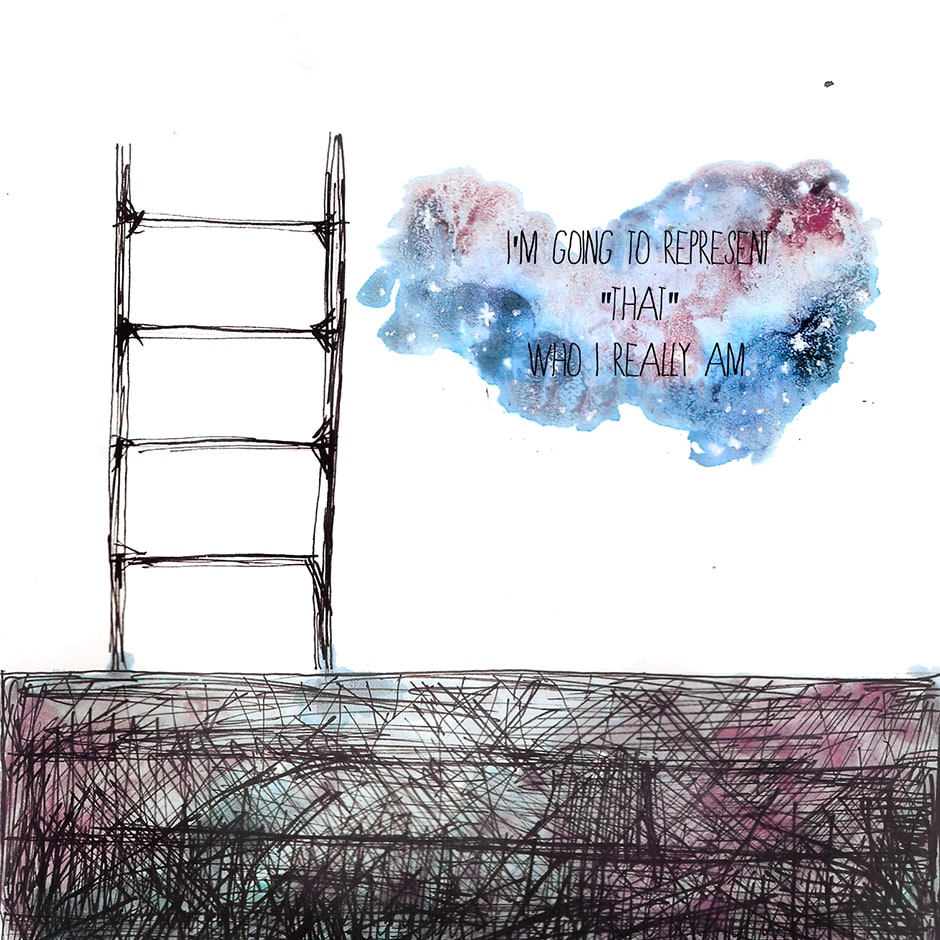 I'M GOING TO REPRESENT
"THAT"
WHO I REALLY AM